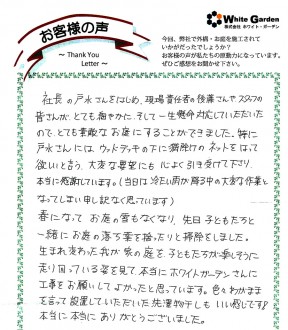 お客様の声
～ Thank You
Letter ～
White Garden
株式会社 ホワイト・ガーデン
今回、弊社で外構・お庭を施工されて
いかがだったでしょうか？
お客様の声が私たちの原動力になっています。
ぜひご感想をお聞かせ下さい。
社長の戸水さんをはじめ、現場責任者の後藤さんでスタッフの
皆さんが、とても爽やかに、そして一生懸命対応していただいた
ので、とても素敵なお庭にすることができました。特に
戸水さんには、ウッドデッキの下に猫除けのネットをはって
欲しいと言う、大変な要望にも心よく引き受けて下さり、
本当に感謝しています。(当日は冷たい雨が降る中の大変な作業と
なってしまい申し訳なく思っています)
春になってお庭の雪もなくなり、先日子どもたちと
一緒にお庭の落ち葉を拾ったりと掃除をしました。
生まれ変わった我が家の庭を、子どもたちが楽しそうに
走り回っている姿を見て、本当にホワイトガーデンさんに
工事をお願いしてよかったと思っています。色々わがまま
を言って設置していただいた洗濯物干しもいい感じです！
本当に本当にありがとうございました。